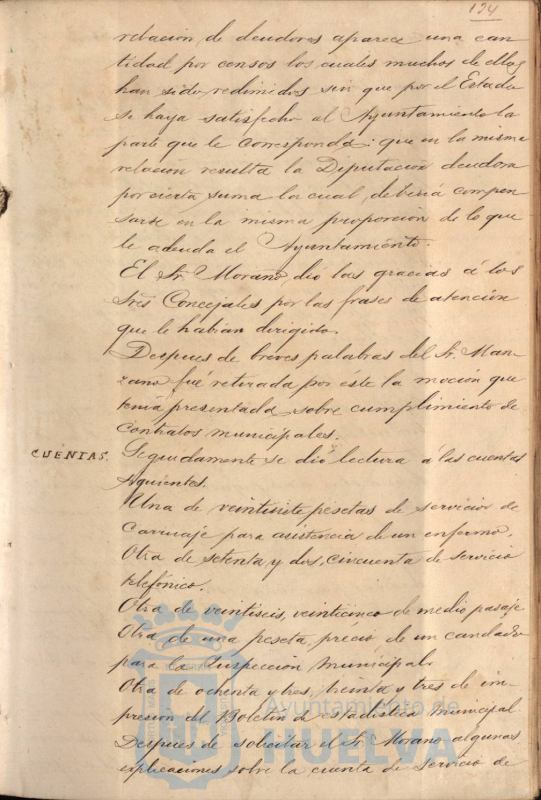 194
relacion de deudores aparece una can-
tidad por censos los cuales muchos de ellos
han sido redimidos sin que por el Estado
se haya satisfecho al Ayuntamiento la
parte que le corresponda: que en la misma
relacion resulta la Diputacion deudora
por cierta suma la cual deberia compen-
sarse en la misma proporcion de lo que
le adeuda el Ayuntamiento.
El Sr. Morano dió las gracias á los
Sres Concejales por las frases de atención
que le habian dirigido.
Despues de breves palabras del Sr. Man-
zano fué retirada por éste la moción que
tenia presentada sobre cumplimiento de
contratos municipales.
CUENTAS. Seguidamente se dió lectura á las cuentas
siguientes.
Una de veintisiete pesetas de servicios de
carruaje para asistencia de un enfermo.
Otra de setenta y dos, cincuenta de servicio
telefónico.
Otra de veintiseis, veinticinco de medio pasaje
Otra de una peseta, precio de un candado
para la Inspección municipal.
Otra de ochenta y tres, treinta y tres de im-
presion del Boletin de estadistica municipal.
Despues de solicitar el Sr. Morano algunas
explicaciones sobre la cuenta de servicio de
Ayuntamiento de
HUELVA